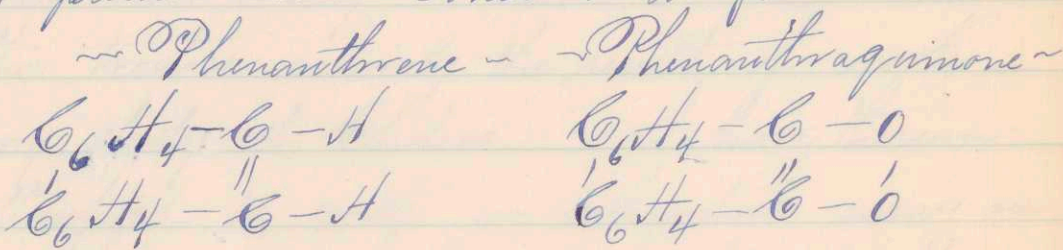 ~ Phenanthrene ~ ~ Phenanthraquinone ~
C6H4 - C - H C6H4 - C - O
' " ' " '
C6H4 - C - H C6H4 - C - O